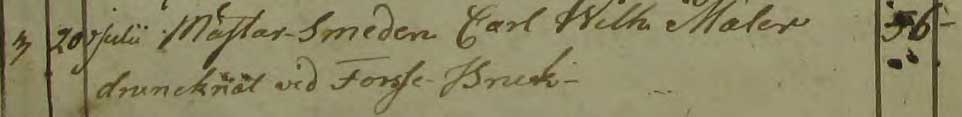 3 20 Julii Mästar-Smeden Carl Wilh. Maler 56-
druncknat vid Forsse-Bruck-